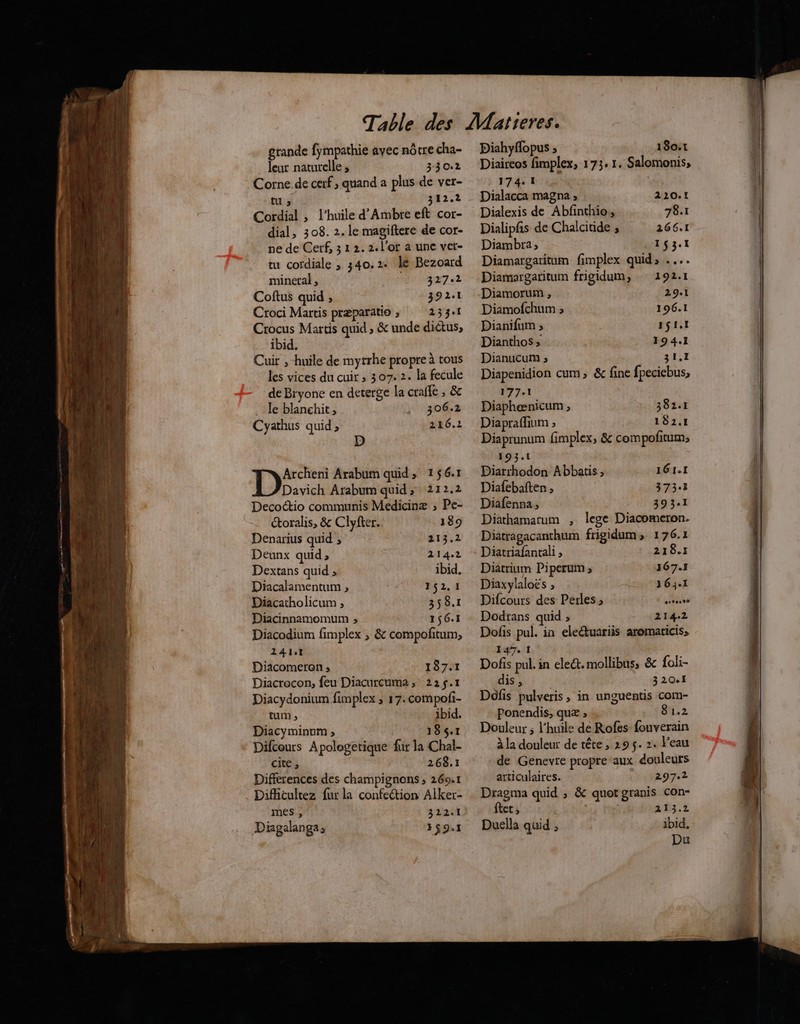 Table des Matieres.
grande ſympathie avec nôtre cha-
leur naturelle, 330.2
Corne de cerf, quand a plus de ver-
tu, 312.2
Cordial, l'huile d'Ambre eſt cor-
dial, 308. 2. le magiſtere de cor-
ne de Cerf, 312. 2. l'or a une ver-
tu cordiale, 340. 2. le Bezoard
mineral, 327.2
Coſtus quid, 392.1
Croci Martis præparatio, 233.1
Crocus Martis quid, & unde dictus,
ibid.
Cuir, huile de myrrhe propre à tous
les vices du cuir, 307. 2. la fecule
de Bryone en deterge la craſſe, &
le blanchit, 306.2
Cyathus quid, 216.2
D
DArcheni Arabum quid, 156.1
Davich Arabum quid, 212.2
Decoctio communis Medicinæ, Pe-
ctoralis, & Clyſter. 189
Denarius quid, 213.2
Deunx quid, 214.2
Dextans quid, ibid.
Diacalamentum, 152.1
Diacatholicum, 358.1
Diacinnamomum, 156.1
Diacodium ſimplex, & compoſitum,
241.1
Diacomeron, 187.1
Diacrocon, ſeu Diacurcuma, 225.1
Diacydonium ſimplex, 17. compoſi-
tum, ibid.
Diacyminum, 185.1
Diſcours Apologetique ſur la Chal-
cite, 268.1
Differences des champignons, 269.1
Difficultez ſur la confection Alker-
mes, 322.1
Diagalanga, 159.1
Diahyſſopus, 180.1
Diaireos ſimplex, 173. 1. Salomonis,
174. 1
Dialacca magna, 220.1
Dialexis de Abſinthio, 78.1
Dialipſis de Chalcitide, 266.1
Diambra, 153.1
Diamargaritum ſimplex quid, ....
Diamargaritum frigidum, 192.1
Diamorum, 29.1
Diamoſchum, 196.1
Dianiſum, 151.1
Dianthos, 194.1
Dianucum, 31.1
Diapenidion cum, & ſine ſpeciebus,
177.1
Diaphœnicum, 382.1
Diapraſſium, 182.1
Diaprunum ſimplex, & compoſitum,
193.1
Diarrhodon Abbatis, 161.1
Diaſebaſten, 373.1
Diaſenna, 393.1
Diathamatum, lege Diacomeron.
Diatragacanthum frigidum, 176.1
Diatriaſantali, 218.1
Diatrium Piperum, 167.1
Diaxylaloës, 163.1
Diſcours des Perles, ......
Dodrans quid, 214.2
Doſis pul. in electuariis aromaticis,
147. 1
Doſis pul. in elect. mollibus, & ſoli-
dis, 320.1
Doſis pulveris, in unguentis com-
ponendis, quæ, 81.2
Douleur, l'huile de Roſes ſouverain
à la douleur de tête, 295. 2. l'eau
de Genevre propre aux douleurs
articulaires. 297.2
Dragma quid, & quot granis con-
ſtet, 213.2
Duella quid, ibid.
Du